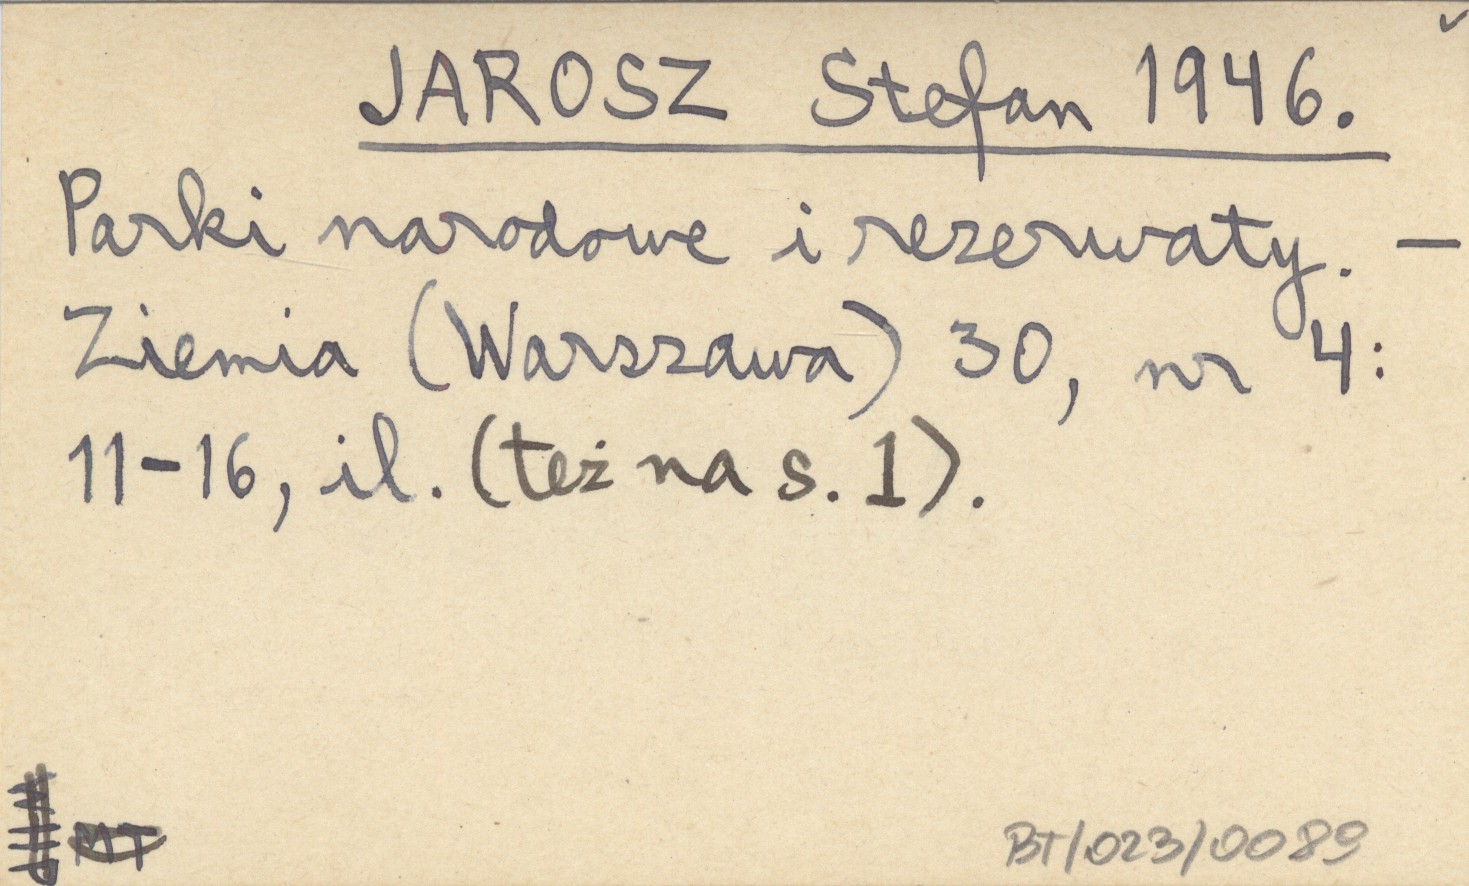 JAROSZ Stefan 1946.
Parki narodowe i rezerwaty. —
Ziemia (Warszawa) 30, nr 4:
11-16, il. (też na s. 1).
MT
BT/023/0089